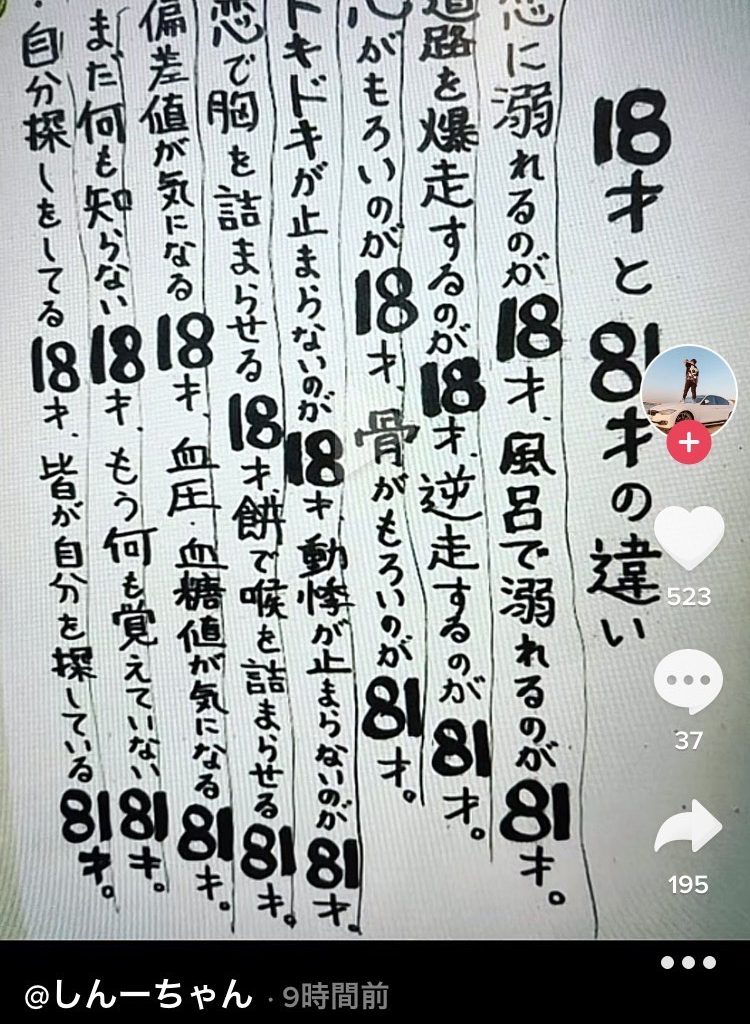 18才と81才の違い
恋に溺れるのが18才、風呂で溺れるのが81才。
道路を爆走するのが18才、逆走するのが81才。
心がもろいのが18才、骨がもろいのが81才。
ドキドキが止まらないのが18才、動悸が止まらないのが81才。
恋で胸を詰まらせる18才、餅で喉を詰まらせる81才。
偏差値が気になる18才、血圧・血糖値が気になる81才。
まだ何も知らない18才、もう何も覚えていない81才。
自分探しをしてる18才、皆が自分を探している81才。
523
37
195
@しんーちゃん · 9時間前